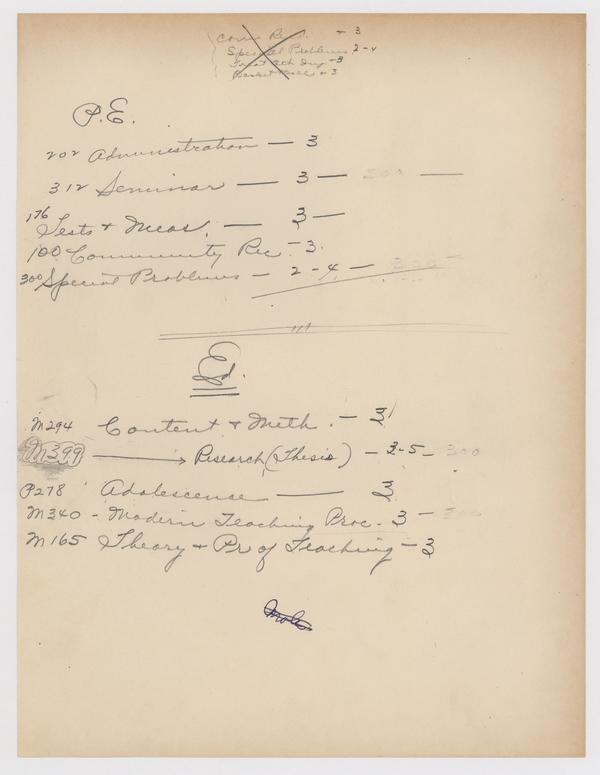 Com Rec. - 3
Special Problems 2-4
Treat ath Inj -3
Basket Ball - 3
P.E.
202 Administration — 3
312 Seminar — 3 — 300 —
176 Tests + Meas. — 3 —
100 Community Rec - 3.
300 Special Problems — 2-4 — 300
Ed.
M294 Content + Meth. - 3
M399 → Research (Thesis) - 3-5- 300
P278 Adolescense — 3
M340 - Modern Teaching Proc - 3 - 300
M165 Theory + Pr of Teaching - 3